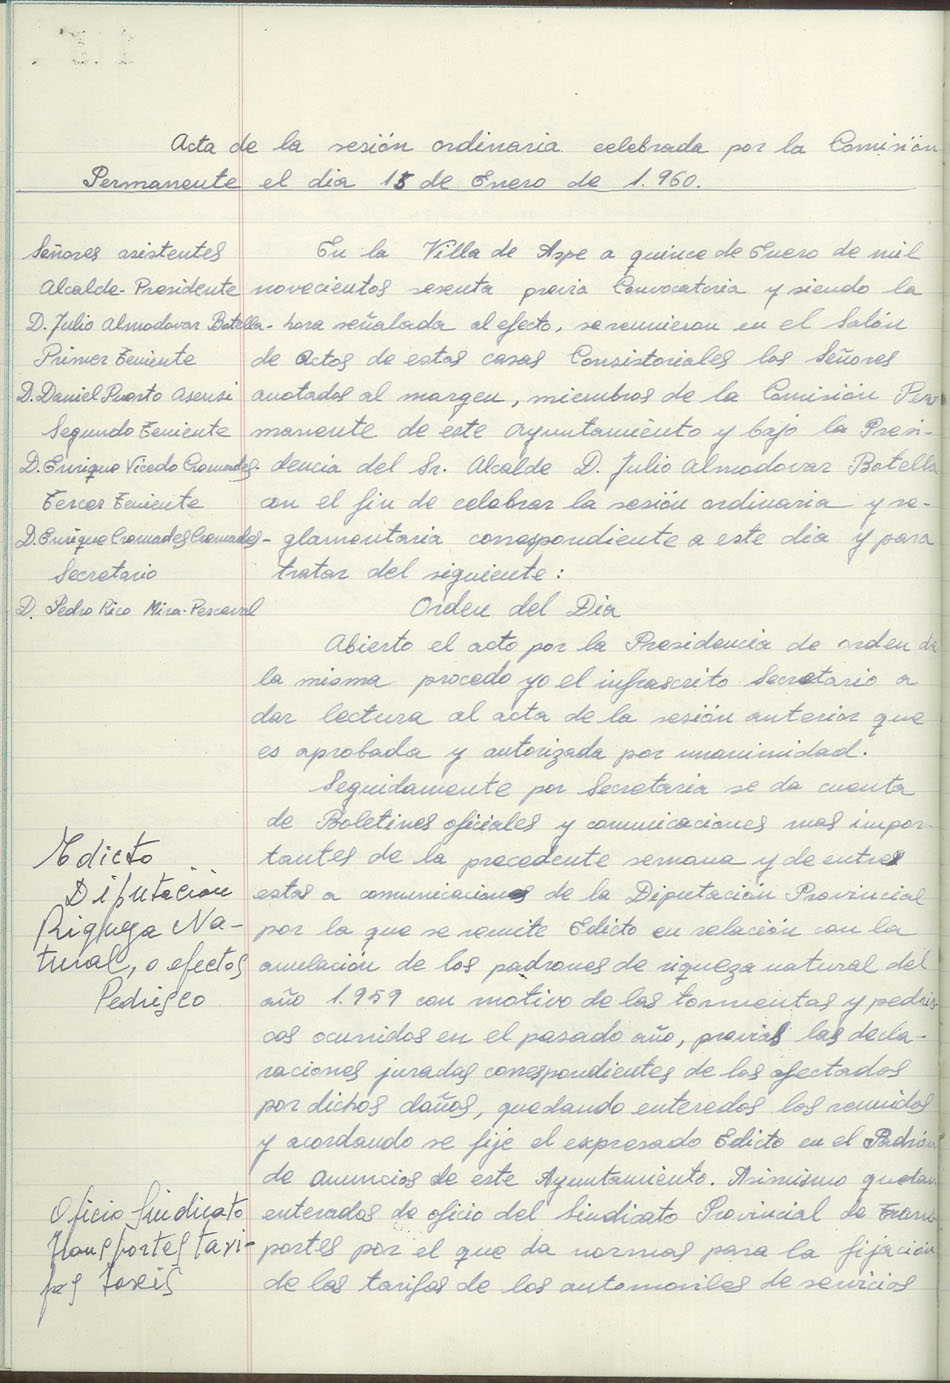 Acta de la sesión ordinaria celebrada por la Comisión
Permanente el dia 15 de Enero de 1.960.
Señores asistentes
Alcalde-Presidente
D. Julio Almodovar Botella-
Primer Teniente
D. Daniel Puerto Asensi
Segundo Teniente
D. Enrique Vicedo Cremades-
Tercer Teniente
D. Enrique Cremades Cremades-
Secretario
D. Pedro Rico Mira-Perceval
En la Villa de Aspe a quince de Enero de mil
novecientos sesenta previa Convocatoria y siendo la
hora señalada al efecto, se reunieron en el Salón
de actos de estas casas Consistoriales los Señores
anotados al margen, miembros de la Comisión Per
manente de este Ayuntamiento y bajo la Presi-
dencia del Sr. Alcalde D. Julio Almodovar Botella
con el fin de celebrar la sesión ordinaria y re-
glamentaria correspondiente a este dia y para
tratar del siguiente:
Orden del Dia
Abierto el acto por la Presidencia de orden de
la misma procedo yo el infrascrito Secretario a
dar lectura al acta de la sesión anterior que
es aprobada y autorizada por unanimidad.
Seguidamente por Secretaria se da cuenta
de Boletines oficiales y comunicaciones mas impor-
tantes de la precedente semana y de entre
estas a comunicaciones de la Diputación Provincial
por la que se remite Edicto en relación con la
anulación de los padrones de riqueza natural del
año 1.959 con motivo de las tormentas y pedris
cos ocurridos en el pasado año, previas las decla-
raciones juradas correspondientes de los afectados
por dichos daños, quedando enterados los reunidos
y acordando se fije el expresado Edicto en el Padrón
de anuncios de este Ayuntamiento. Asimismo quedan
enterados de oficio del Sindicato Provincial de Trans
portes por el que da normas para la fijación
de las tarifas de los automoviles de servicios
Edicto
Diputación
Riqueza Na-
tural, o efectos
Pedrisco
Oficio Sindicato
Transportes tari-
fas Taxis